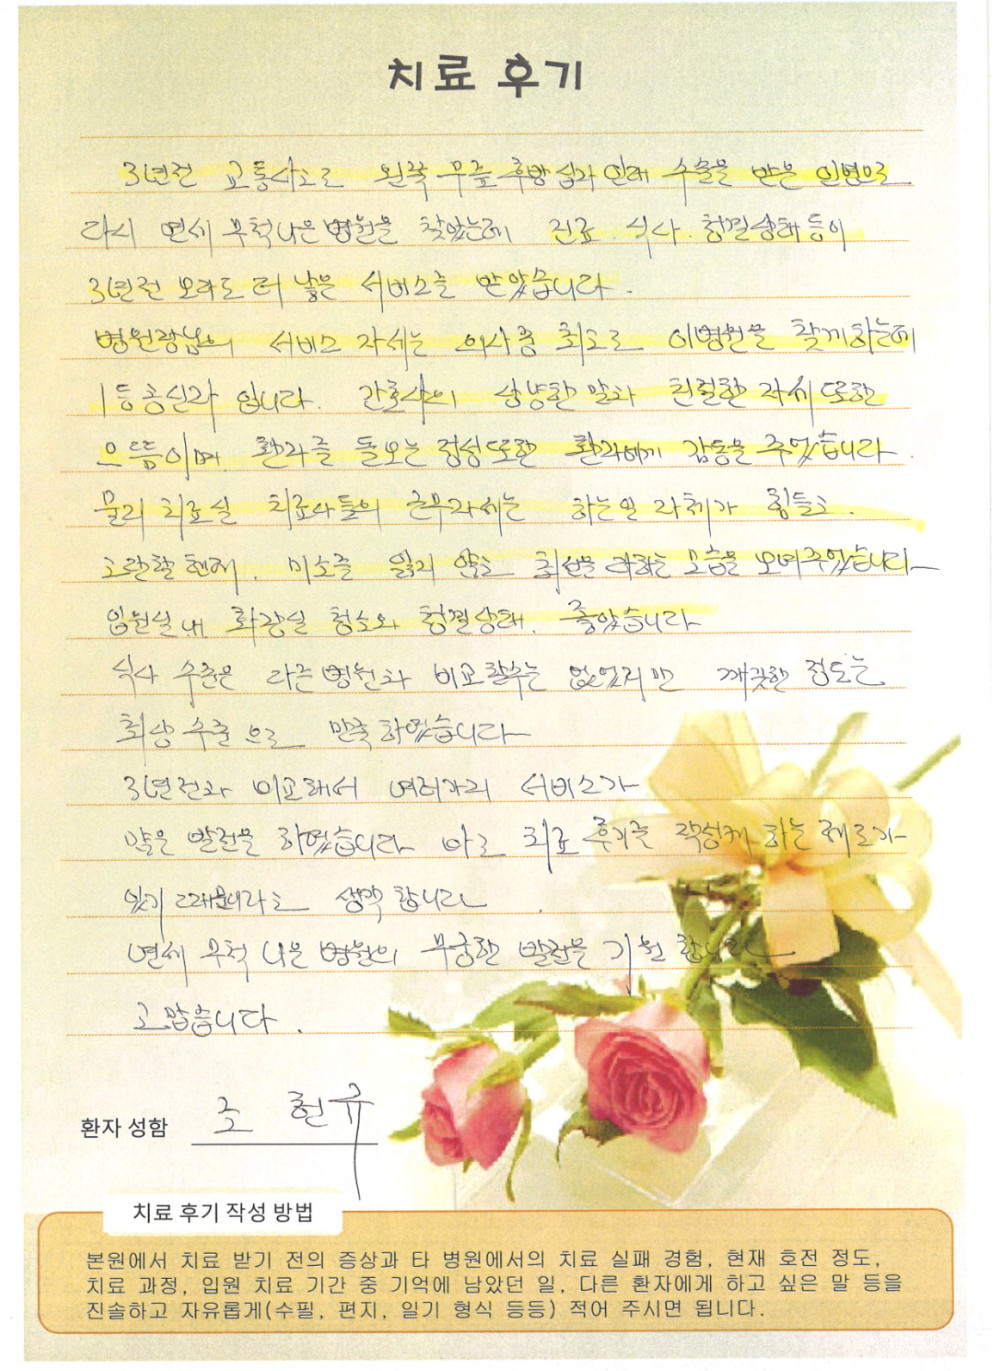 치료 후기
3년전 교통사고로 왼쪽 무릎 후방 십자 인대 수술을 받은 인연으로
다시 연세 무척나은 병원을 찾았는데 진료. 식사. 청결상태 등이
3년전 보라도 더 낳은 서비스를 받았습니다.
병원장님의 서비스 자세는 의사중 최고로 이병원을 찾게하는데
1등 공신자 입니다. 간호사의 상냥한 말과 친절한 자세 또한
으뜸이며. 환자를 돌보는 정성또한 환자에게 감동을 주었습니다.
물리 치료실 치료사들의 근무자세는 하는일 자체가 힘들고.
고란할텐데. 미소를 잃지 않고 최선을 다하는 모습을 보여주었습니다
입원실 내 화장실 청소와 청결상태. 좋았습니다
식사 수준은 다른 병원과 비교 할수는 없었지만 깨끗한 정도는
최상 수준 으로 만족 하였습니다
3년전과 비교해서 여러가지 서비스가
많은 발전을 하였습니다 바로 치료 후기를 작성케 하는 제도가
있기 때문이라고 생각 합니다
연세 무척 나은 병원의 무궁한 발전을 기원 합니다
고맙습니다.
환자 성함 조 현규
치료 후기 작성 방법
본원에서 치료 받기 전의 증상과 타 병원에서의 치료 실패 경험, 현재 호전 정도,
치료 과정, 입원 치료 기간 중 기억에 남았던 일, 다른 환자에게 하고 싶은 말 등을
진솔하고 자유롭게(수필, 편지, 일기 형식 등등) 적어 주시면 됩니다.